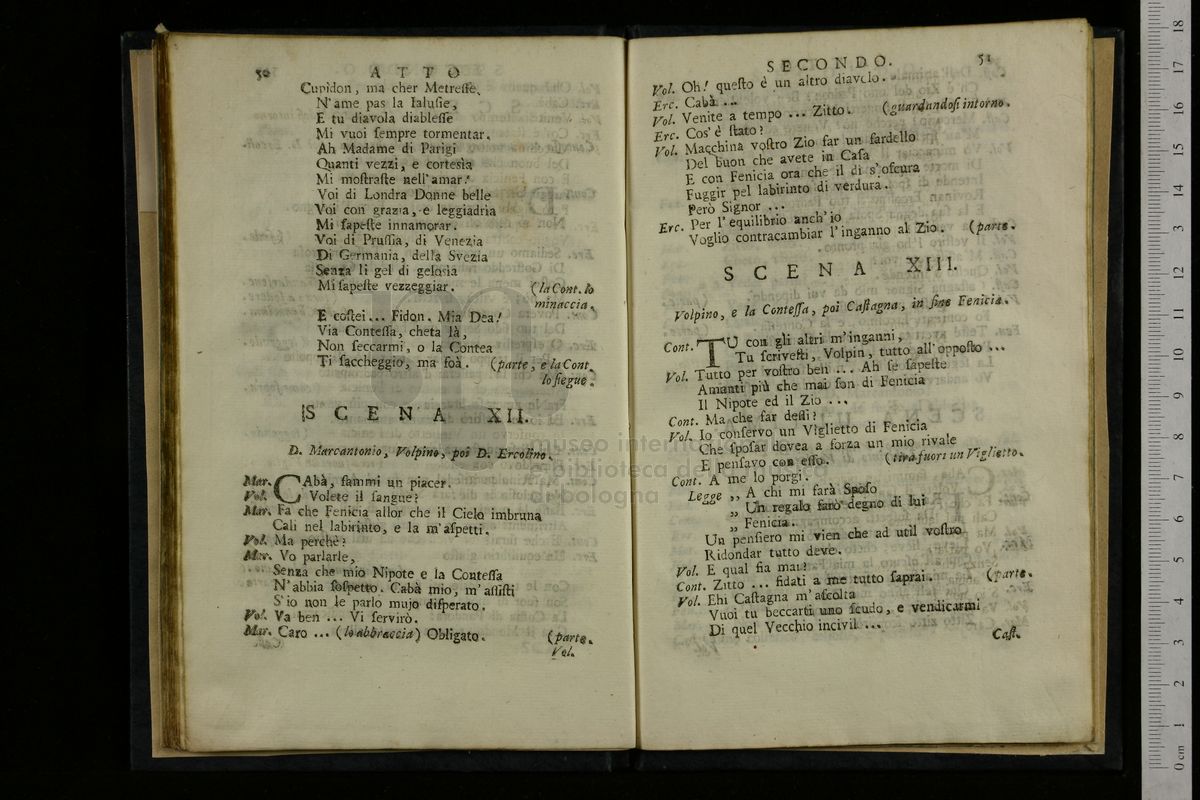 50 ATTO
Cupidon, ma cher Metreſſe,
N'ame pas la Ialuſie,
E tu diavola diableſſe
Mi vuoi ſempre tormentar.
Ah Madame di Parigi
Quanti vezzi, e cortesìa
Mi moſtraſte nell'amar!
Voi di Londra Donne belle
Voi con grazia, e leggiadrìa
Mi ſapeſte innamorar.
Voi di Pruſſia, di Venezia
Di Germania, della Svezia
Senza li gel di gelosìa
Mi ſapeſte vezzeggiar. (la Cont. lo
minaccia.
E coſtei... Fidon. Mia Dea!
Via Conteſſa, cheta là,
Non ſeccarmi, o la Contea
Ti ſaccheggio, ma foà. (parte, e la Cont.
lo ſiegue.
SCENA XII.
D. Marcantonio, Volpino, poi D. Ercolino.
Mar. CAbà, fammi un piacer.
Vol. Volete il ſangue?
Mar. Fa che Fenicia allor che il Cielo imbruna
Cali nel labirinto, e la m'aſpetti.
Vol. Ma perchè?
Mar. Vo parlarle,
Senza che mio Nipote e la Conteſſa
N'abbia ſoſpetto. Cabà mio, m'aſſiſti
S'io non le parlo mujo diſperato.
Vol. Va ben ... Vi ſervirò.
Mar. Caro ... (lo abbraccia) Obligato. (parte.
Vol.
SECONDO. 51
Vol. Oh! queſto è un altro diavolo.
Erc. Cabà ...
Vol. Venite a tempo ... Zitto. (guardandoſi intorno.
Erc. Cos'è ſtato?
Vol. Macchina voſtro Zio far un fardello
Del buon che avete in Caſa
E con Fenicia ora che il dì s'oſcura
Fuggir pel labirinto di verdura.
Però Signor ...
Erc. Per l'equilibrio anch'io
Voglio contracambiar l'inganno al Zio. (parte.
SCENA XIII.
Volpino, e la Conteſſa, poi Caſtagna, in fine Fenicia.
Cont. TU con gli altri m'inganni,
Tu ſcriveſti, Volpin, tutto all'oppoſto ...
Vol. Tutto per voſtro ben ... Ah ſe ſapeſte
Amanti più che mai ſon di Fenicia
Il Nipote ed il Zio ...
Cont. Ma che far deſſi?
Vol. Io conſervo un Viglietto di Fenicia
Che ſpoſar dovea a forza un mio rivale
E penſavo con eſſo. (tira fuori un Viglietto.
Cont. A me lo porgi.
Legge ,, A chi mi farà Spoſo
,, Un regalo farò degno di lui
,, Fenicia.
Un penſiero mi vien che ad util voſtro
Ridondar tutto deve.
Vol. E qual fia mai?
Cont. Zitto ... fidati a me tutto ſaprai. (parte.
Vol. Ehi Caſtagna m'aſcolta
Vuoi tu beccarti uno ſcudo, e vendicarmi
Di quel Vecchio incivil ...
Caſt.
museo internazionale
e biblioteca della musica
di bologna
0 cm 1 2 3 4 5 6 7 8 9 10 11 12 13 14 15 16 17 18